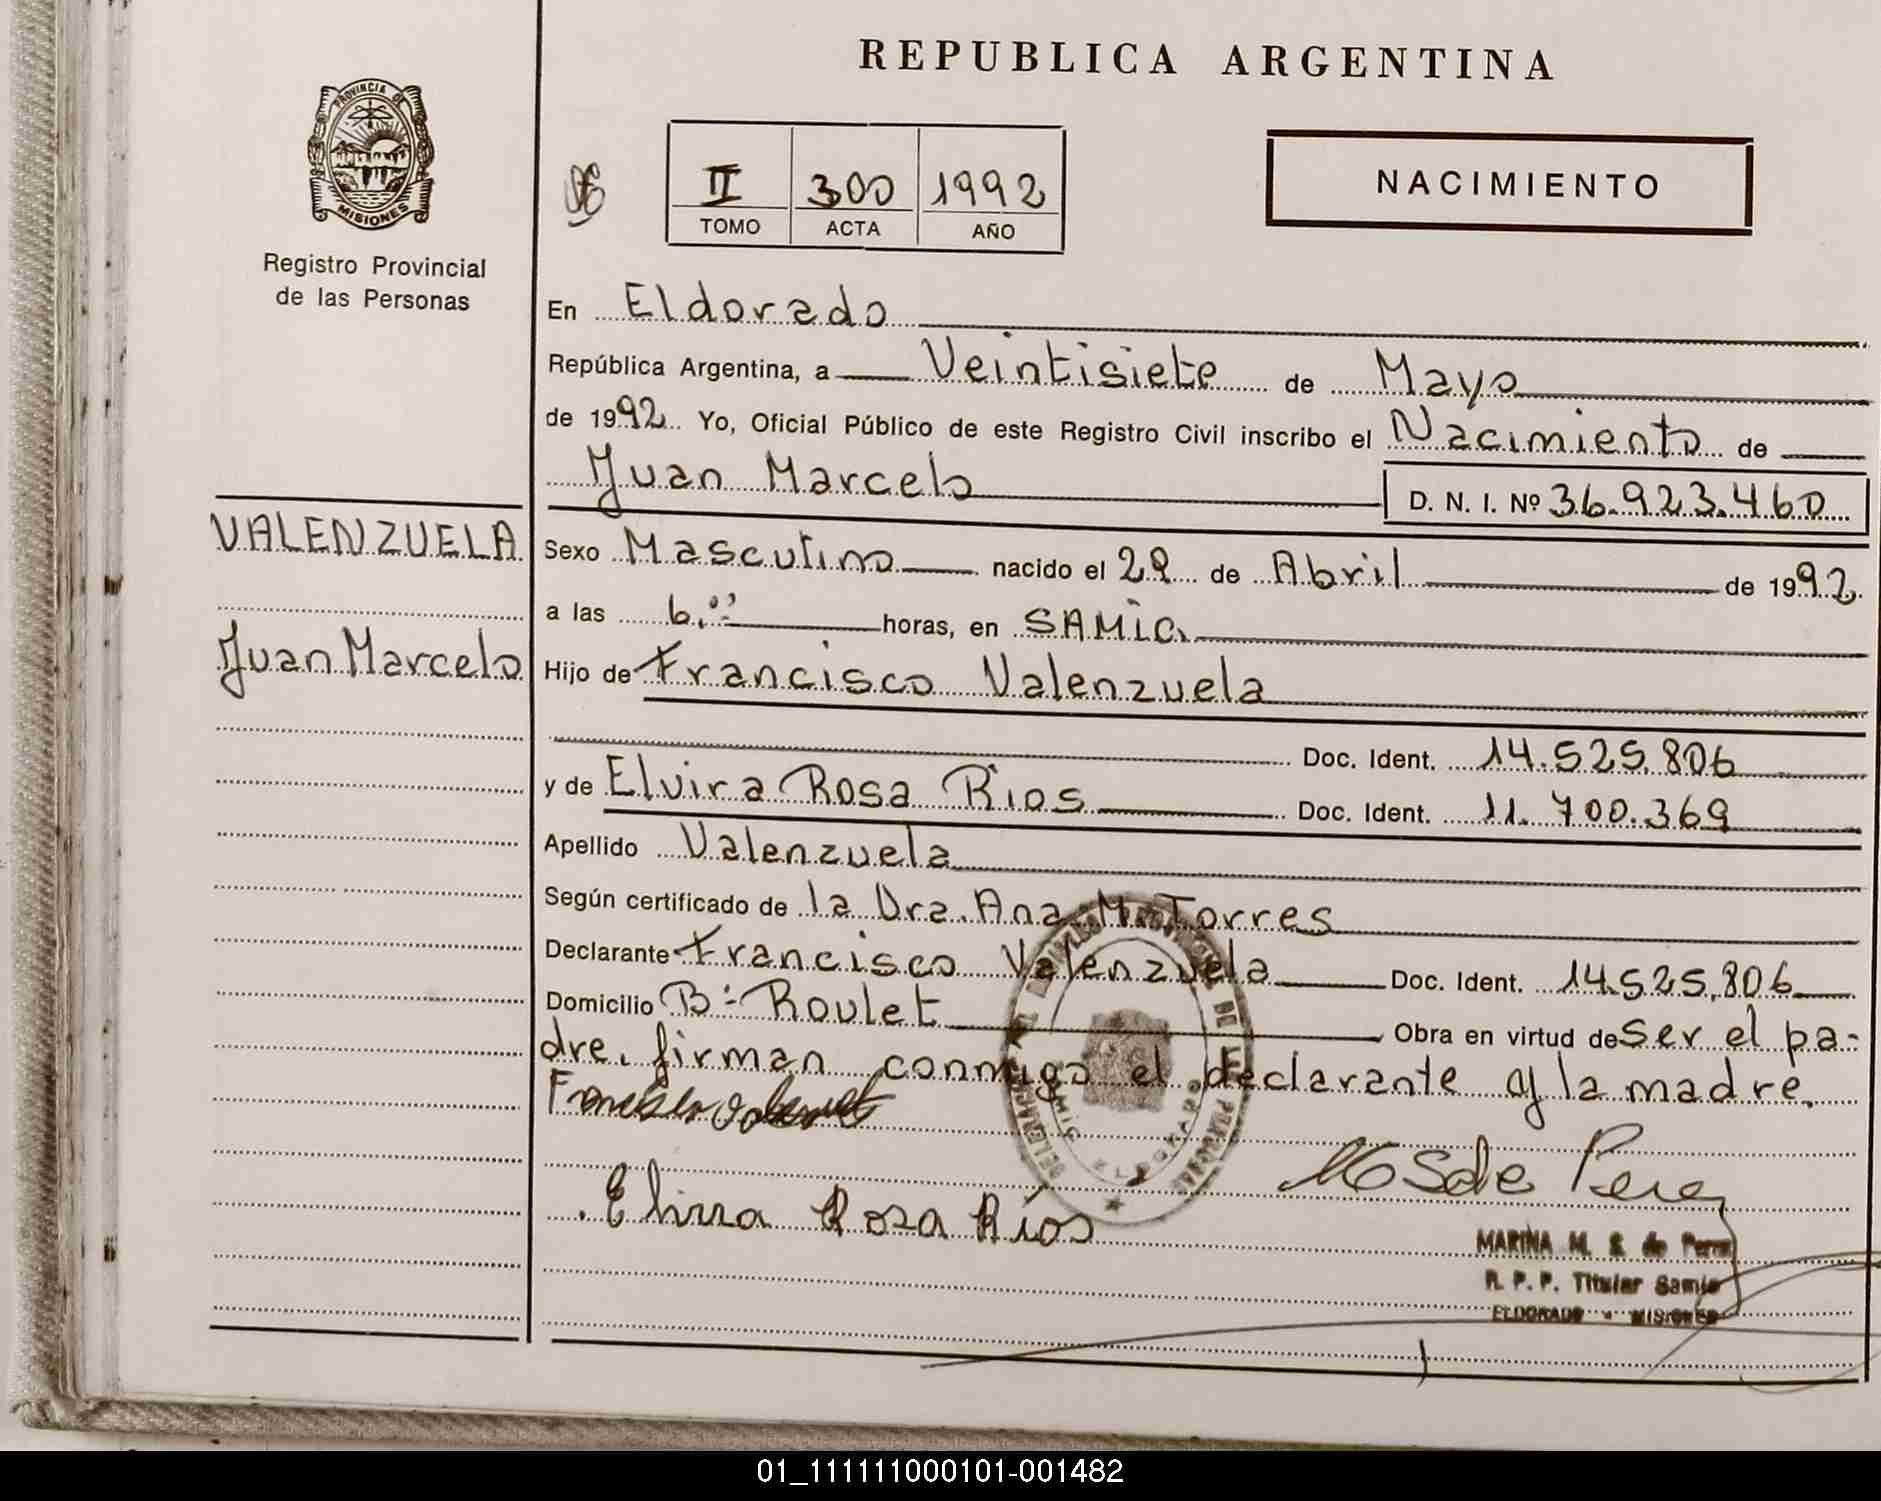 REPUBLICA ARGENTINA
PROVINCIA DE
MISIONES
Registro Provincial
de las Personas
II 300 1992
TOMO ACTA AÑO
NACIMIENTO
En Eldorado
República Argentina, a Veintisiete de Mayo
de 1992 Yo, Oficial Público de este Registro Civil inscribo el Nacimiento de
Juan Marcelo D. N. I. Nº 36.923.460
VALENZUELA
Juan Marcelo
Sexo Masculino nacido el de Abril de 1992
a las 6. horas, en SAMIC.
Hijo de Francisco Valenzuela
Doc. Ident. 14.525.806
y de Elvira Rosa Rios Doc. Ident. 11.700.369
Apellido Valenzuela
Según certificado de la Dra. Ana M. Torres
Declarante Francisco Valenzuela Doc. Ident. 14.525.806
Domicilio Bº Roulet Obra en virtud de Ser el pa-
dre. firman conmigo el declarante y la madre.
Elvira Rosa Ríos
S de Perez
MARINA M. S. de Perez
R. P. P. Titular Samic
ELDORADO - MISIONES
01_111111000101-001482